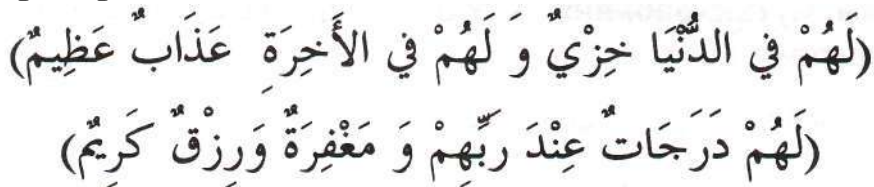 (لَهُمْ في الدُّنْيَا خِزْيٌ وَ لَهُمْ في الأَخِرَةِ عَذَابٌ عَظِيمٌ)
(لَهُمْ دَرَجَاتٌ عِنْدَ رَبِّهِمْ وَ مَغْفِرَةٌ وَرِزْقٌ كَرِيمٌ)